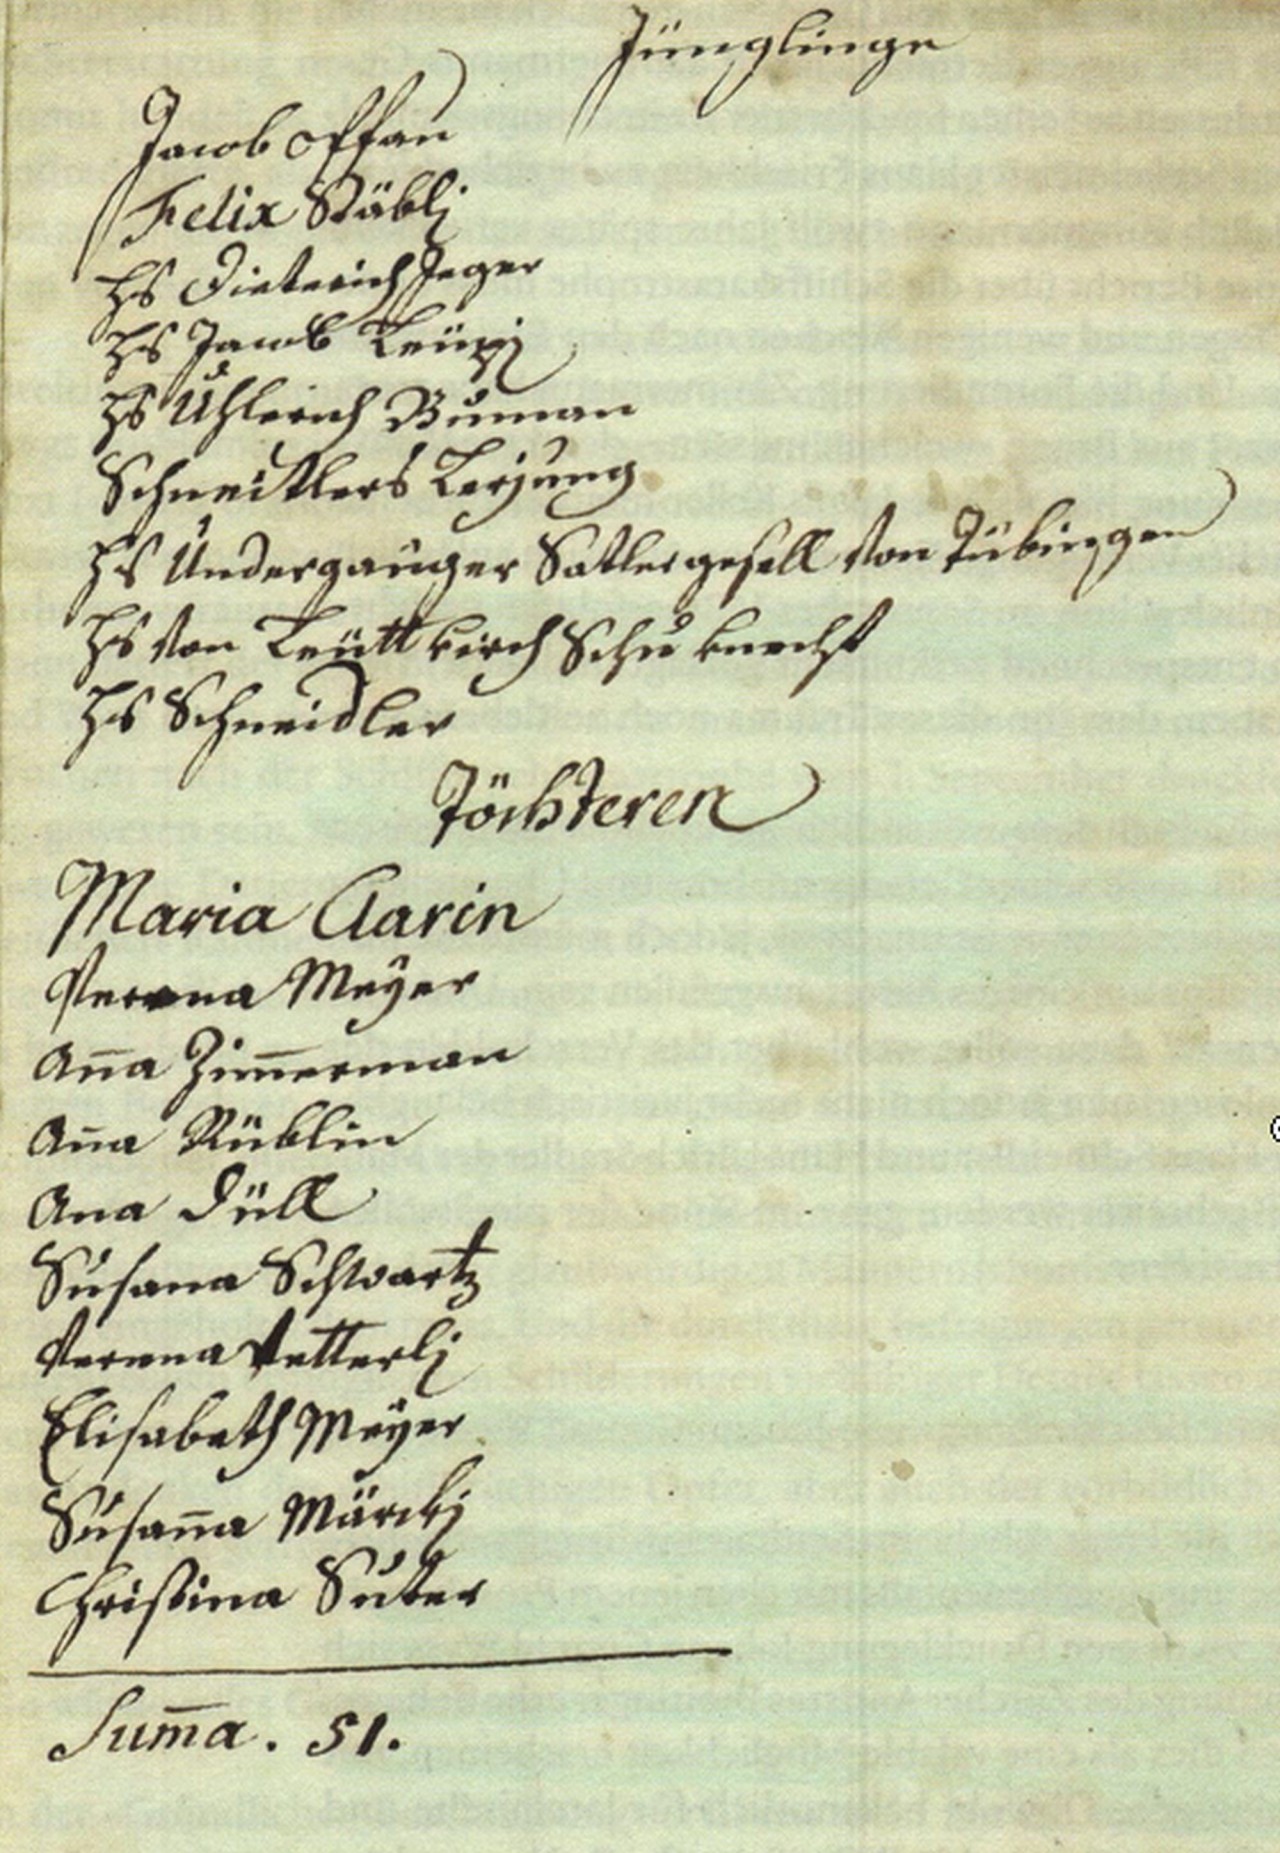 Jünglinge
Jacob Offan
Felix Stäblj
Hs Dieterich Jeger
Hs Jacob
Hs Uhlerich Buman
Schneittlers Lerjung
Hs Undergauger Satlergesell von Tübingen
Hs von Leüttkirch Schuknecht
Hs Schneidler
Töchteren
Maria Clarin
Verena Meÿer
Aña Zim̄erman
Aña Rüblin
Ana Düll
Susana Schwartz
Verena Vetterlj
Elisabeth Meÿer
Susaña Märckj
Christina Suter
Sum̄a. 51.